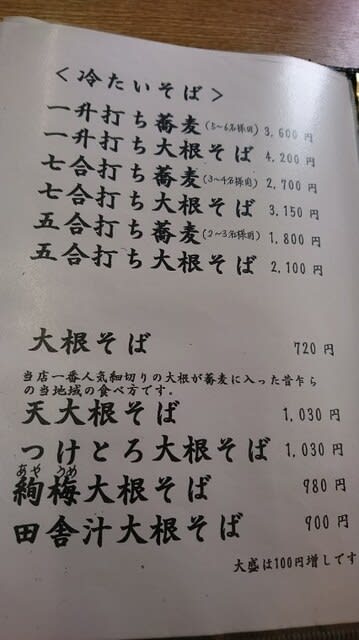 ＜冷たいそば＞
一升打ち蕎麦(5~6名様用) 3,600 円
一升打ち大根そば 4,200 円
七合打ち蕎麦(3~4名様用) 2,700 円
七合打ち大根そば 3,150 円
五合打ち蕎麦(2~3名様用) 1,800 円
五合打ち大根そば 2,100 円
大根そば 720 円
当店一番人気細切りの大根が蕎麦に入った昔乍ら
の当地域の食べ方です.
天大根そば 1,030 円
つけとろ大根そば 1,030 円
あや うめ
絢梅大根そば 980 円
田舎汁大根そば 900 円
大盛は100円増しです